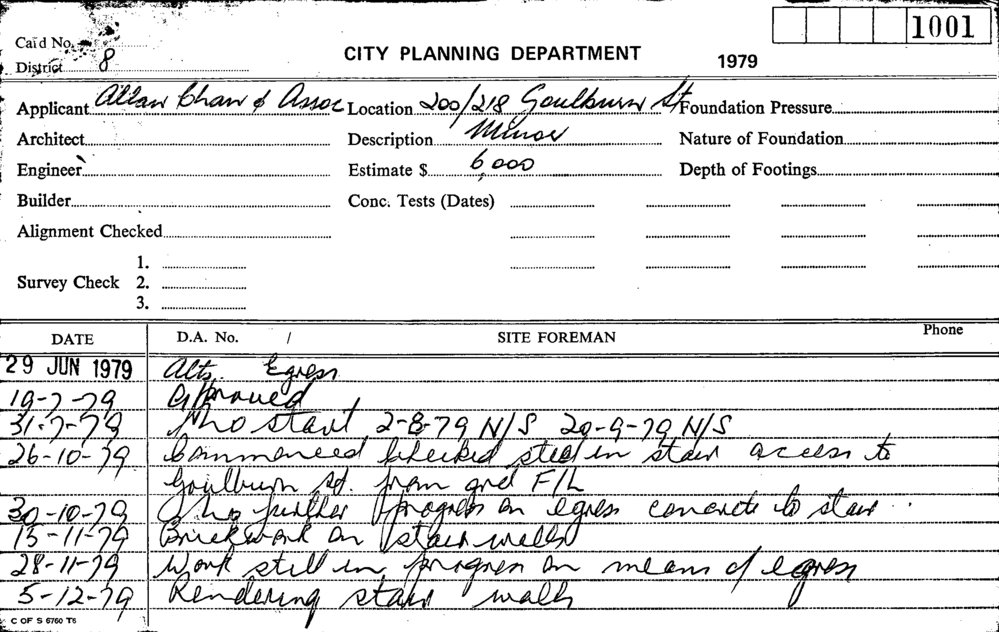 1001
Card No.
District 8
CITY PLANNING DEPARTMENT 1979
Applicant Allan Chan & Assoc Location 200/218 Goulburn St Foundation Pressure
Architect Description Minor Nature of Foundation
Engineer Estimate $ 6,000 Depth of Footings
Builder Conc. Tests (Dates)
Alignment Checked
Survey Check 1.
2.
3.
DATE D.A. No. / SITE FOREMAN Phone
29 JUN 1979 Alts Egress
19-7-79 Approved
31-7-79 No start 2-8-79 N/S 20-9-79 N/S
26-10-79 Commenced checked steel in stair access to
Goulburn St. from grd F/L
30-10-79 No further progress on egress concrete to stair
15-11-79 Brickwork on stair wells
28-11-79 Work still in progress on means of egress
5-12-79 Rendering stair walls
C OF S 6760 T6